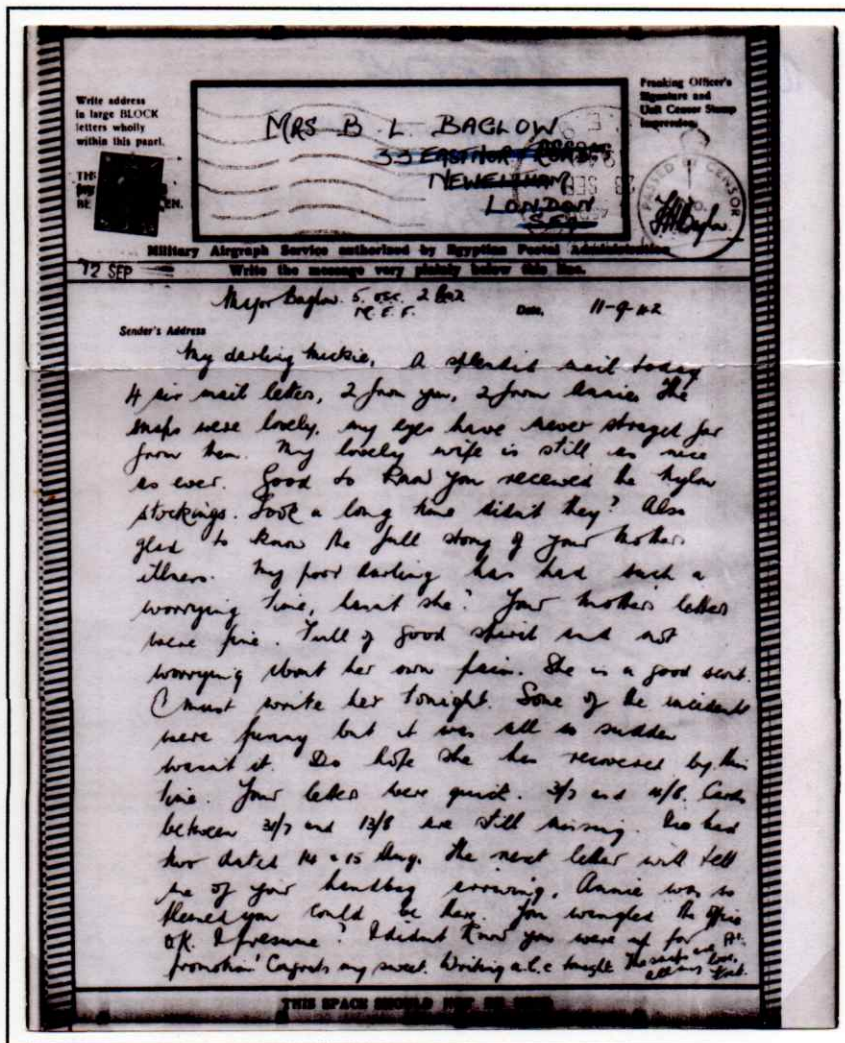 Write address
in large BLOCK
letters wholly
within this panel.
MRS B L BAGLOW
33 EASTNOR ROAD
NEW ELTHAM
LONDON
Franking Officer's
Signature and
Unit Censor Stamp
Impression
PASSED BY CENSOR
Military Airgraph Service authorized by Egyptian Postal Administration
12 SEP
Write the message very plainly below this line.
Major Baglow.
M.E.F.
Date, 11-9-42
Sender's Address
My darling Mickie, A splendid mail today
4 air mail letters, 2 from you, 2 from Annie. The
snaps were lovely, my eyes have never strayed far
from them. My lovely wife is still as nice
as ever. Good to know you received the nylon
stockings. Took a long time didn't they? Also
glad to know the full story of your mothers
illness. My poor darling has had such a
worrying time, hasn't she? Your mother's letters
were fine. Full of good spirit and not
worrying about her own pain. She is a good sort.
I must write her tonight. Some of the incidents
were funny but it was all so sudden
wasn't it. Do hope she has recovered by this
time. Your letters were quick. 3/7 and 11/8. Cards
between 31/7 and 13/8 are still missing. Ive had
two dated 14 & 15 Aug. The next letter will tell
me of your handbag arriving, Annie was so
pleased you could be there. You wangled the office
OK. I presume? I didn't know you were up for
promotion! Cograts my sweet. Writing a.l.c tonight
all my
THIS SPACE SHOULD NOT BE USED